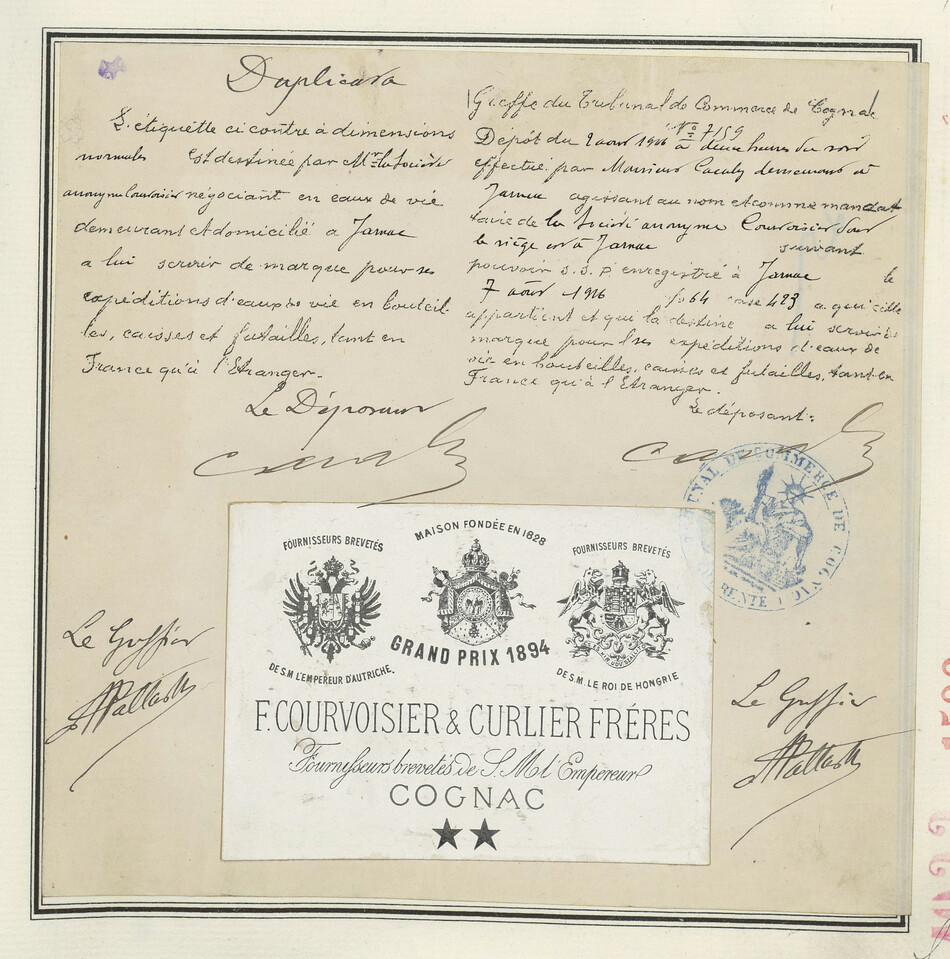 Duplicata
L'étiquette ci contre à dimensions
normales est destinée par Mr la Société
anonyme Courvoisier négociant en eaux de vie
demeurant et domicilié à Jarnac
a lui servir de marque pour ses
expéditions d'eaux de vie en bouteil-
les, caisses et futailles, tant en
France qu'à l'Etranger.
Le Déposant
Greffe du Tribunal de Commerce de Cognac
No 7159
Dépôt du 2 aout 1916 à deux heures du soir
effectué par Monsieur demeurant à
Jarnac agissant au nom et comme mandat
taire de la Société anonyme Courvoisier dont
le siège est à Jarnac suivant
pouvoir s.s.p. enregistré à Jarnac le
7 août 1916 fo 64 case 423 a qui elle
appartient et qui la destine a lui servir de
marque pour ses expéditions d'eaux de
vie en bouteilles, caisses et futailles, tant en
France qu'à l'Etranger.
Le déposant:
TRIBUNAL DE COMMERCE DE COGNAC
FOURNISSEURS BREVETÉS
MAISON FONDÉE EN 1828
FOURNISSEURS BREVETÉS
GRAND PRIX 1894
DE S.M L'EMPEREUR D'AUTRICHE.
DE S.M. LE ROI DE HONGRIE
F. COURVOISIER & CURLIER FRÉRES
Fournisseurs brevetés de S. M. l'Empereur
COGNAC
Le Greffier
Le Greffier